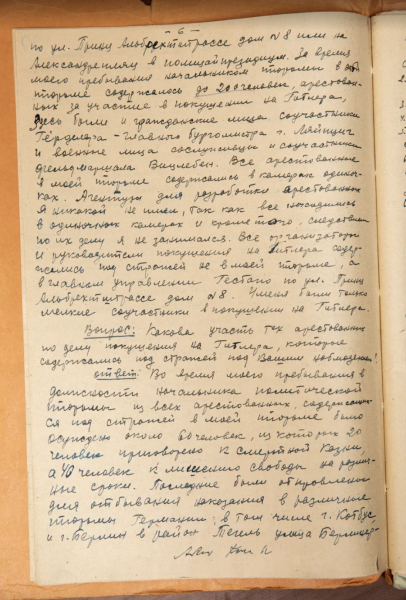 - 6 -
по ул. Принц Альбрехтштрассе дом №8 или на
Александерплац в полицайпрезидиум. За время
моего пребывания начальником тюрьмы в этой
тюрьме содержалось до 200 человек, арестован-
ных за участие в покушении на Гитлера,
здесь были и гражданские лица соучастники
Герделера - главного бургомистра г. Лейпциг
и военные лица сослуживцы и соучастники
фельдмаршала Вицлебен. Все арестованные
в моей тюрьме содержались в камерах одиноч-
ках. Агентуры для разработки арестованных
я никакой не имел, так как все находились
в одиночных камерах и кроме того, следствием
по их делу я не занимался. Все организаторы
и руководители покушения на Гитлера содер-
жались под стражей не в моей тюрьме, а
в главном управлении Гестапо по ул. Принц
Альбрехтштрассе дом №8. У меня были только
мелкие соучастники в покушении на Гитлера.
Вопрос: Какова участь тех арестованных
по делу покушения на Гитлера, которые
содержались под стражей под Вашим наблюдением?
Ответ: Во время моего пребывания в
должности начальника политической
тюрьмы из всех арестованных, содержавших-
ся под стражей в моей тюрьме было
осуждено около 60 человек, из которых 20
человек приговорено к смертной казни,
а 40 человек к лишению свободы на различ-
ные сроки. Последние были отправлены
для отбывания наказания в различные
тюрьмы Германии, в том числе г. Котбус,
и г. Берлин в район Тегель улица Берлинер-